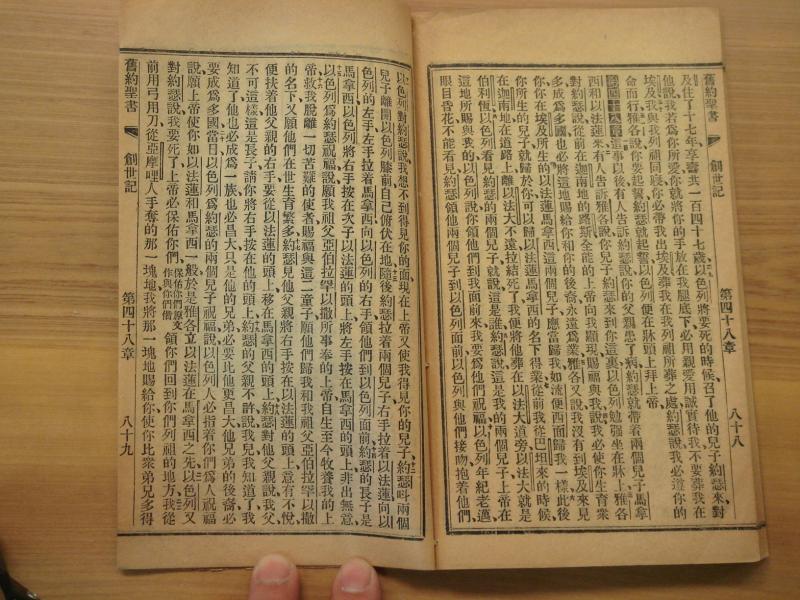 舊約聖書
創世記
第四十八章
八十八
及住了十七年享壽共一百四十七歲以色列將要死的時候召了他的兒子約瑟來對
他說我若為你所愛你就將你的手放在我腿底下必用親愛用誠實待我不要葬我在
埃及我與我列祖同寢你必帶我出埃及葬我在我列祖所葬之處約瑟說我必遵你的
命而行雅各說你要起誓約瑟就起誓以色列便在牀頭上拜上帝
第四十八章這事以後有人告訴約瑟說你的父親患了病約瑟就帶着兩個兒子馬拿
西和以法蓮來有人告訴雅各說你兒子約瑟來到你這裏以色列勉強坐在牀上雅各
對約瑟說從前在迦南地的路斯全能的上帝向我顯現賜福與我說我必使你生育衆
多成為多國也必將這地賜給你和你的後裔永遠為業雅各又說我沒有到埃及來見
你你在埃及所生的以法蓮馬拿西這兩個兒子應當歸我如流便西面歸我一樣此後
你所生的兒子就歸於你可以歸以法蓮馬拿西的名下得業從前我從巴坦來的時候
在迦南地在道路上離以法大不遠拉結死了我便將他葬在以法大道旁以法大就是
伯利恆以色列看見約瑟的兩個兒子就說這是誰約瑟說這是我的兩個兒子上帝在
這地所賜與我的以色列說你領他們到我面前來我要為他們祝福以色列年紀老邁
眼目昏花不能看見約瑟領他兩個兒子到以色列面前以色列與他們接吻抱着他們
以色列對約瑟說我想不到得見你的面現在上帝又使我得見你的兒子約瑟叫兩個
兒子離開以色列膝前自己俯伏在地隨後約瑟拉着兩個兒子右手拉着以法蓮向以
色列的左手左手拉着馬拿西向以色列的右手領他們到以色列面前約瑟的長子是
馬拿西以色列將右手按在次子以法蓮的頭上將左手按在馬拿西的頭上非出無意
以色列為約瑟祝福說願我祖父亞伯拉罕以撒所事奉的上帝自生至今牧養我的上
帝救我脫離一切苦難的使者賜福與這二童子願他們歸我和我祖父亞伯拉罕以撒
的名下又願他們在世生育繁多約瑟見他父親將右手按在以法蓮的頭上意有不悅
便扶着他父親的右手要從以法蓮的頭上移在馬拿西的頭上約瑟對他父親說我父
不可這樣這是長子請你將右手按在他的頭上約瑟的父親不許說我兒我知道了我
知道了他也必成為一族也必昌大只是他的兄弟必要比他更昌大他兄弟的後裔必
要成為多國當日以色列為約瑟的兩個兒子祝福說以色列人必指着你們為人祝福
說願上帝使你如以法蓮和馬拿西一般於是雅各立以法蓮在馬拿西之先以色列又
對約瑟說我要死了上帝必保佑你們保佑你們原文作與你們偕領你們回到你們列祖的地方我從
前用弓用刀從亞摩哩人手奪的那一塊地我將那一塊地賜給你使你比衆弟兄多得
舊約聖書
創世記
第四十八章
八十九